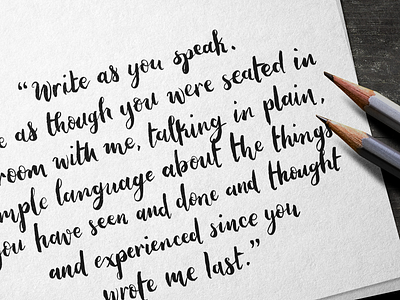 “Write as you speak.
e as though you were seated in
room with me, talking in plain,
mple language about the things
you have seen and done and thought
and experienced since you
wrote me last.”